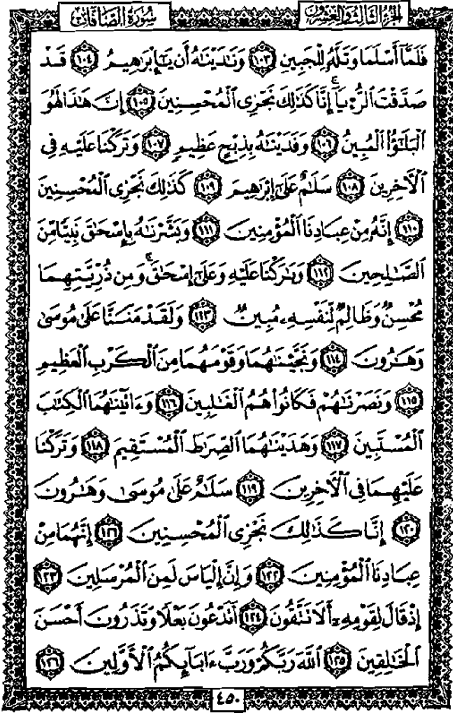 الجزء الثالث والعشرون سورة الصافات
فَلَمَّآ أَسۡلَمَا وَتَلَّهُۥ لِلۡجَبِينِ ١٠٣ وَنَٰدَيۡنَٰهُ أَن يَٰٓإِبۡرَٰهِيمُ ١٠٤ قَدۡ
صَدَّقۡتَ ٱلرُّءۡيَآۚ إِنَّا كَذَٰلِكَ نَجۡزِي ٱلۡمُحۡسِنِينَ ١٠٥ إِنَّ هَٰذَا لَهُوَ
ٱلۡبَلَٰٓؤُاْ ٱلۡمُبِينُ ١٠٦ وَفَدَيۡنَٰهُ بِذِبۡحٍ عَظِيمٖ ١٠٧ وَتَرَكۡنَا عَلَيۡهِ فِي
ٱلۡأٓخِرِينَ ١٠٨ سَلَٰمٌ عَلَىٰٓ إِبۡرَٰهِيمَ ١٠٩ كَذَٰلِكَ نَجۡزِي ٱلۡمُحۡسِنِينَ
١١٠ إِنَّهُۥ مِنۡ عِبَادِنَا ٱلۡمُؤۡمِنِينَ ١١١ وَبَشَّرۡنَٰهُ بِإِسۡحَٰقَ نَبِيّٗا مِّنَ
ٱلصَّٰلِحِينَ ١١٢ وَبَٰرَكۡنَا عَلَيۡهِ وَعَلَىٰٓ إِسۡحَٰقَۚ وَمِن ذُرِّيَّتِهِمَا
مُحۡسِنٞ وَظَالِمٞ لِّنَفۡسِهِۦ مُبِينٞ ١١٣ وَلَقَدۡ مَنَنَّا عَلَىٰ مُوسَىٰ
وَهَٰرُونَ ١١٤ وَنَجَّيۡنَٰهُمَا وَقَوۡمَهُمَا مِنَ ٱلۡكَرۡبِ ٱلۡعَظِيمِ
١١٥ وَنَصَرۡنَٰهُمۡ فَكَانُواْ هُمُ ٱلۡغَٰلِبِينَ ١١٦ وَءَاتَيۡنَٰهُمَا ٱلۡكِتَٰبَ
ٱلۡمُسۡتَبِينَ ١١٧ وَهَدَيۡنَٰهُمَا ٱلصِّرَٰطَ ٱلۡمُسۡتَقِيمَ ١١٨ وَتَرَكۡنَا
عَلَيۡهِمَا فِي ٱلۡأٓخِرِينَ ١١٩ سَلَٰمٌ عَلَىٰ مُوسَىٰ وَهَٰرُونَ
١٢٠ إِنَّا كَذَٰلِكَ نَجۡزِي ٱلۡمُحۡسِنِينَ ١٢١ إِنَّهُمَا مِنۡ
عِبَادِنَا ٱلۡمُؤۡمِنِينَ ١٢٢ وَإِنَّ إِلۡيَاسَ لَمِنَ ٱلۡمُرۡسَلِينَ ١٢٣
إِذۡ قَالَ لِقَوۡمِهِۦٓ أَلَا تَتَّقُونَ ١٢٤ أَتَدۡعُونَ بَعۡلٗا وَتَذَرُونَ أَحۡسَنَ
ٱلۡخَٰلِقِينَ ١٢٥ ٱللَّهَ رَبَّكُمۡ وَرَبَّ ءَابَآئِكُمُ ٱلۡأَوَّلِينَ ١٢٦
٤٥٠